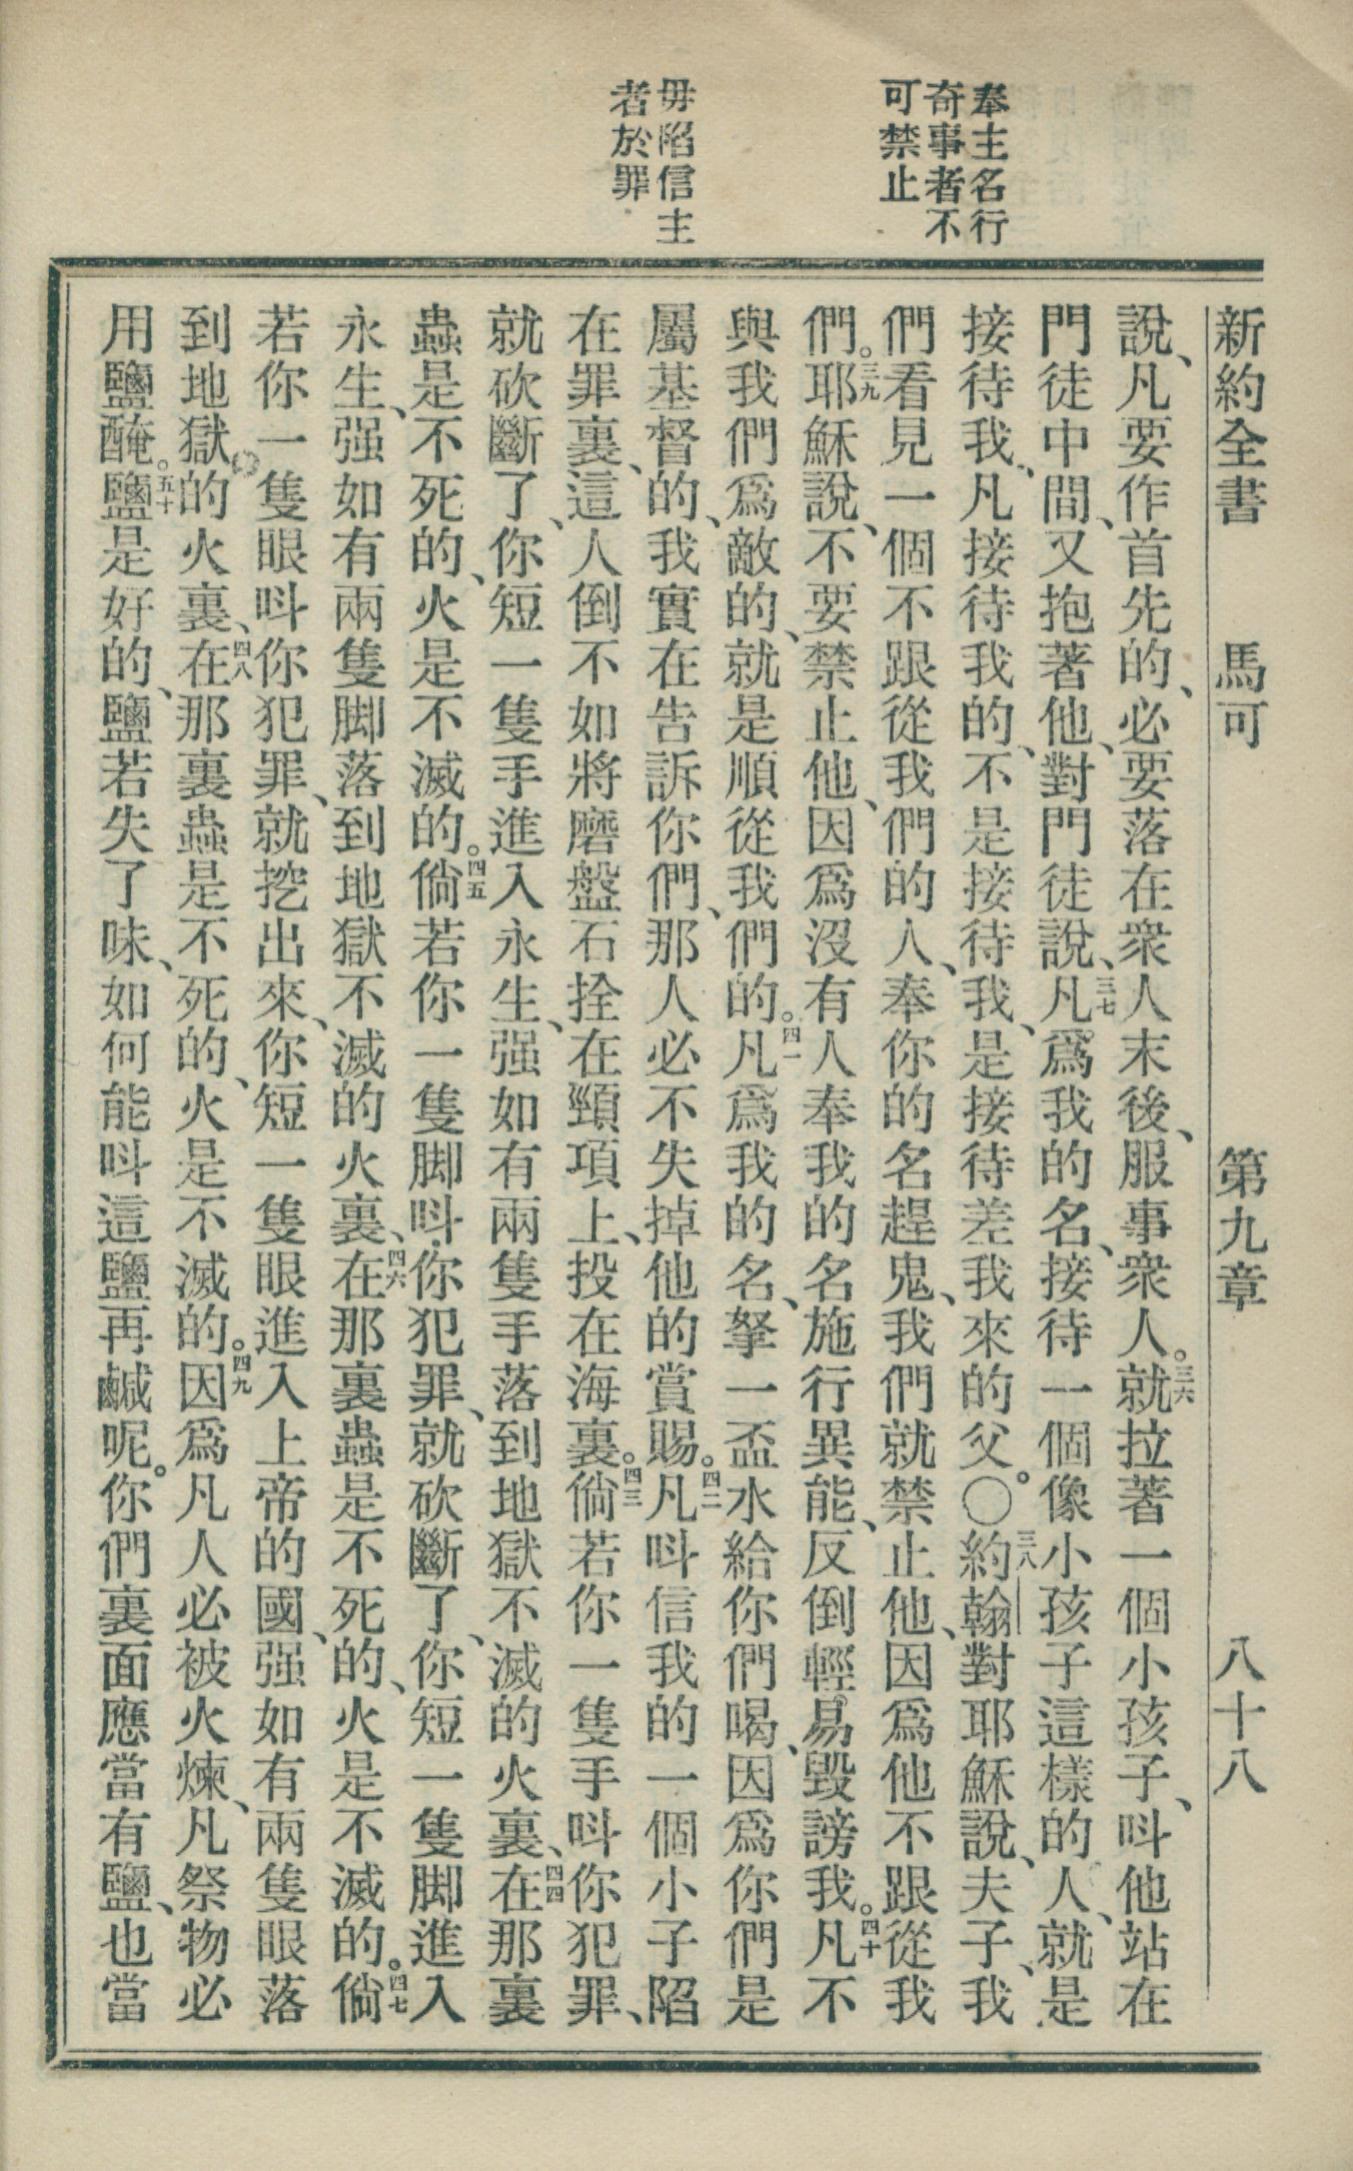 奉主名行
奇事者不
可禁止
毋陷信主
者於罪
新約全書　馬可　第九章　八十八
說、凡要作首先的、必要落在衆人末後、服事衆人。三六就拉著一個小孩子、呌他站在
門徒中間、又抱著他、對門徒說、三七凡爲我的名、接待一個像小孩子這樣的人、就是
接待我、凡接待我的、不是接待我、是接待差我來的父。〇三八約翰對耶穌說、夫子、我
們看見一個不跟從我們的人、奉你的名趕鬼、我們就禁止他、因爲他不跟從我
們。三九耶穌說、不要禁止他、因爲沒有人奉我的名施行異能、反倒輕易毀謗我。四十凡不
與我們爲敵的、就是順從我們的。四一凡爲我的名、拏一盃水給你們喝、因爲你們是
屬基督的、我實在告訴你們、那人必不失掉他的賞賜。四二凡呌信我的一個小子陷
在罪裏、這人倒不如將磨盤石拴在頸項上、投在海裏。四三倘若你一隻手呌你犯罪、
就砍斷了、你短一隻手進入永生、强如有兩隻手落到地獄不滅的火裏、四四在那裏
蟲是不死的、火是不滅的。四五倘若你一隻脚呌你犯罪、就砍斷了、你短一隻脚進入
永生、强如有兩隻脚落到地獄不滅的火裏、四六在那裏蟲是不死的、火是不滅的。四七倘
若你一隻眼呌你犯罪、就挖出來、你短一隻眼進入上帝的國、强如有兩隻眼落
到地獄的火裏、四八在那裏蟲是不死的、火是不滅的。四九因爲凡人必被火煉、凡祭物必
用鹽醃。五十鹽是好的、鹽若失了味、如何能呌這鹽再鹹呢。你們裏面應當有鹽、也當